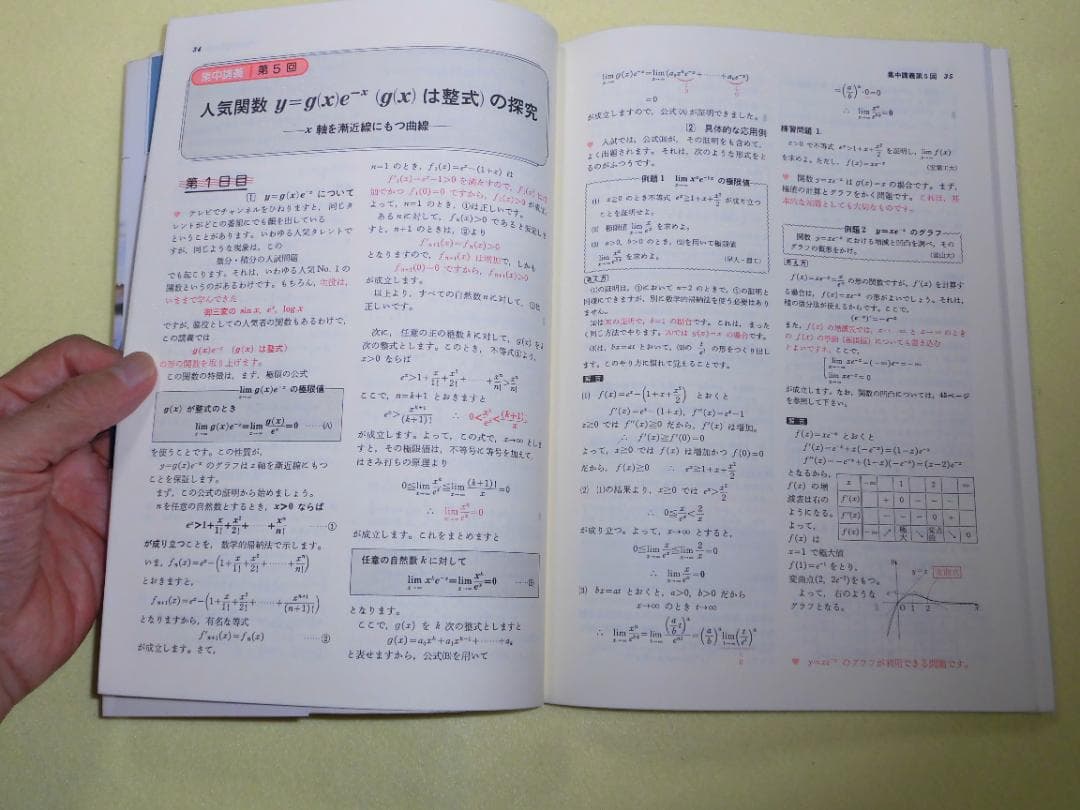 34
集中講義 第5回
人気関数 y=g(x)e⁻ˣ (g(x) は整式) の探究
——x 軸を漸近線にもつ曲線——
第1日目
1 y=g(x)e⁻ˣ について
♥ テレビでチャンネルをひねりますと、同じタ
レントがどこの番組にでも顔を出している
ということがあります。いわゆる人気タレントで
すが、同じような現象は、この
微分・積分の入試問題
でも起こります。それは、いわゆる人気No.1の
関数というのがあるわけです。もちろん、主役は、
いままで学んできた
御三家の sin x, eˣ, log x
ですが、脇役としての人気者の関数もあるわけで、
この講義では
g(x)e⁻ˣ (g(x) は整式)
の形の関数を取り上げます。
この関数の特徴は、まず、極限の公式
lim g(x)e⁻ˣ の極限値
g(x) が整式のとき
lim x→∞ g(x)e⁻ˣ=lim x→∞ g(x)/eˣ=0 ……(A)
を使うことです。この性質が、
y=g(x)e⁻ˣ のグラフは x 軸を漸近線にもつ
ことを保証します。
まず、この公式の証明から始めましょう。
n を任意の自然数とするとき、x>0 ならば
eˣ>1+x/1!+x²/2!+……+xⁿ/n! ……①
が成り立つことを、数学的帰納法で示します。
いま、fₙ(x)=eˣ−(1+x/1!+x²/2!+……+xⁿ/n!)
とおきますと、
fₙ₊₁(x)=eˣ−(1+x/1!+x²/2!+……+xⁿ⁺¹/(n+1)!)
となりますから、有名な等式
f'ₙ₊₁(x)=fₙ(x) ……②
が成立します。さて、
n=1 のとき、f₁(x)=eˣ−(1+x) は
f₁'(x)=eˣ−1>0 を満たすので、f₁(x)
加でかつ f₁(0)=0 ですから、f₁(x)>0 が成立
よって、n=1 のとき、①は正しいです。
ある n に対して、fₙ(x)>0 であると仮定しま
すと、n+1 のときは、②より
f'ₙ₊₁(x)=fₙ(x)>0
となりますので、fₙ₊₁(x) は増加で、しかも
fₙ₊₁(0)=0 ですから、fₙ₊₁(x)>0
が成立します。
以上より、すべての自然数 n に対して、①は
正しいです。
次に、任意の正の整数 k に対して、g(x) を
次の整式とします。このとき、不等式①より、
x>0 ならば
eˣ>1+x/1!+x²/2!+……+xⁿ/n!>xⁿ/n!
ここで、n=k+1 とおきますと
eˣ>xᵏ⁺¹/(k+1)! ∴ 0<xᵏ/eˣ<(k+1)!/x
が成立します。よって、この式で、x→∞ としま
すと、その極限値は、不等号に等号を加えて、
はさみ打ちの原理より
0≦lim x→∞ xᵏ/eˣ≦lim x→∞ (k+1)!/x=0
∴ lim x→∞ xᵏ/eˣ=0
が成立します。これをまとめますと
任意の自然数 k に対して
lim x→∞ xᵏe⁻ˣ=lim x→∞ xᵏ/eˣ=0 ……(B)
となります。
ここで、g(x) を k 次の整式としますと
g(x)=a₀xᵏ+a₁xᵏ⁻¹+……+aₖ
と表せますから、公式(B)を用いて
集中講義第5回 35
lim x→∞ g(x)e⁻ˣ=lim x→∞ (a₀xᵏe⁻ˣ+……+aₖe⁻ˣ)
=0
が成立しますので、公式(A)が証明できました。
2 具体的な応用例
♥ 入試では、公式(B)が、その証明をも含めて、
よく出題されます。それは、次のような形式をと
るのがふつうです。
例題1 lim x→∞ xⁿe⁻ˣ の極限値
(1) x≧0 のとき不等式 eˣ≧1+x+x²/2 が成り立つ
ことを証明せよ。
(2) 極限値 lim x→∞ x/eˣ を求めよ。
(3) a>0, b>0 のとき、(2)を用いて極限値
lim x→∞ xᵃ/eᵇˣ を求めよ。 (早大・商)
考え方
(1)の証明は、①において n=2 のときで、①の証明と
同様にできますが、別に数学的帰納法を使う必要はあり
ません。
(2)は(B)の証明で、k=1 の場合です。これは、まった
く同じ方法でやります。(A)では g(x)=x の場合です。
(3)は、bx=at とおいて、(2)の t/eᵗ の形をつくり出し
ます。このやり方に慣れて見えることです。
解答
(1) f(x)=eˣ−(1+x+x²/2) とおくと
f'(x)=eˣ−(1+x), f''(x)=eˣ−1
x≧0 では f''(x)≧0 だから、f'(x) は増加。
∴ f'(x)≧f'(0)=0
よって、x≧0 では f(x) は増加かつ f(0)=0
だから、f(x)≧0 ∴ eˣ≧1+x+x²/2
(2) (1)の結果より、x≧0 では eˣ>x²/2
∴ 0≦x/eˣ<2/x
が成り立つ。よって、x→∞ とすると、
0≦lim x→∞ x/eˣ≦lim x→∞ 2/x=0
∴ lim x→∞ x/eˣ=0
(3) bx=at とおくと、a>0, b>0 だから
x→∞ のとき t→∞
∴ lim x→∞ xᵃ/eᵇˣ=lim t→∞ (a/b t)ᵃ/eᵃᵗ=(a/b)ᵃ lim t→∞ (t/eᵗ)ᵃ
=(a/b)ᵃ·0=0
∴ lim x→∞ xᵃ/eᵇˣ=0
練習問題 1
x>0 で不等式 eˣ>1+x+x²/2 を証明し、lim x→∞ f(x)
を求めよ。ただし、f(x)=xe⁻ˣ
♥ 関数 y=xe⁻ˣ は g(x)=x の場合です。まず、
極値の計算とグラフをかく問題です。これは、基
本的な知識としても大切なものです。
例題2 y=xe⁻ˣ のグラフ
関数 y=xe⁻ˣ における増減と凹凸を調べ、その
グラフの概形をかけ。 (富山大)
考え方
f(x)=xe⁻ˣ=x/eˣ の形の関数ですが、f'(x) を計算す
る場合は、f(x)=xe⁻ˣ の形がよいでしょう。それは、
積の微分法が使えるからです。ここで、
(e⁻ˣ)'=−e⁻ˣ
f(x)=xe⁻ˣ とおくと
解答
f'(x)=e⁻ˣ+x(−e⁻ˣ)=(1−x)e⁻ˣ
f''(x)=−e⁻ˣ+(1−x)(−e⁻ˣ)=(x−2)e⁻ˣ
となるから、
f(x) の増
減表は右の
ようになる。
よって、
f(x) は
x −∞ 1 2 ∞
f'(x) + 0 − − −
f''(x) − − − 0 +
f(x) −∞ ↗ 極大 ↘ 変曲値 ↘ 0
x=1 で極大値
f(1)=e⁻¹ をとり、
変曲点(2, 2e⁻²)をもつ。
よって、右のような
グラフとなる。
y=x 変曲点
0 1 2
♥ y=xe⁻ˣ のグラフが利用できる問題です。